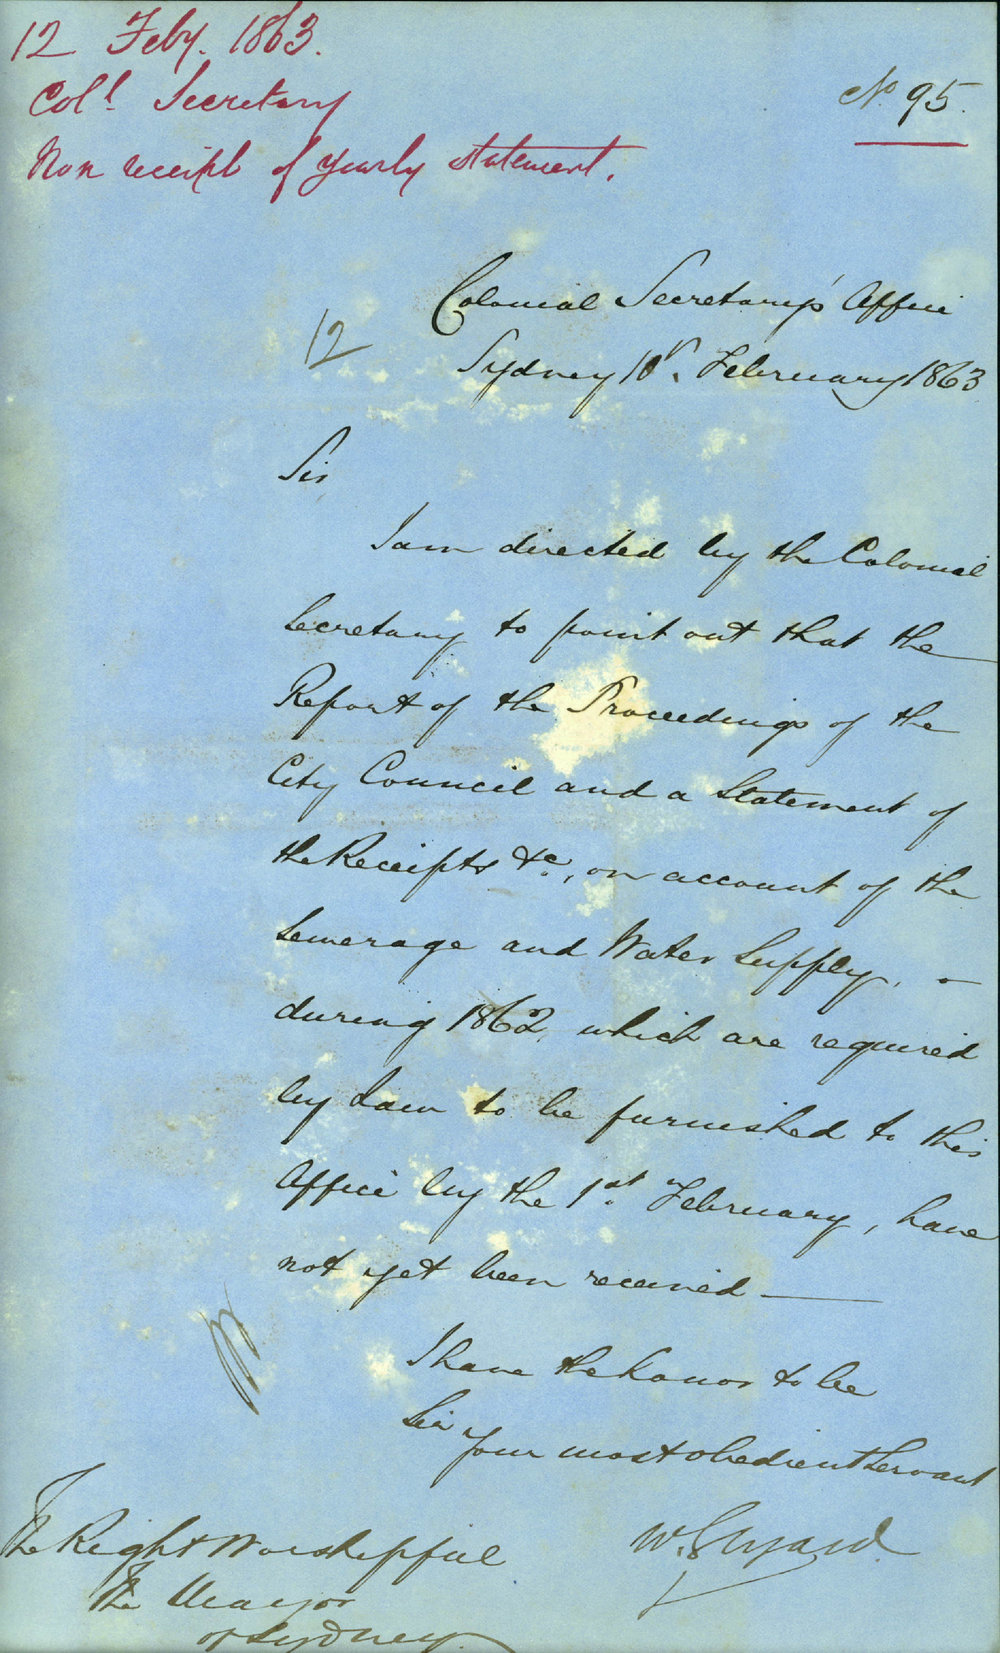 12 Feby. 1863.
Coll. Secretary
Non receipt of yearly statement.
No 95.
Colonial Secretary's Office
12
Sydney 10th. February 1863
Sir
I am directed by the Colonial
Secretary to point out that the
Report of the Proceedings of the
City Council and a Statement of
the Receipts &c., on account of the
Sewerage and Water Supply, –
during 1862, which are required
by Law to be furnished to this
Office by the 1st. February, have
not yet been received —
I have the honor to be
Sir
Your most obedient Servant
W.
The Right Worshipful
The Mayor
of Sydney